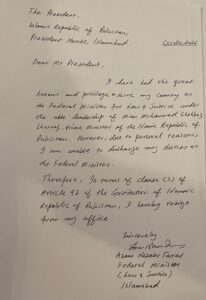 The President,
Islamic Republic of Pakistan,
President House, Islamabad.
Dear Mr President,
I have had the great
honour and privilege serve my country as
the Federal Minister for Law & Justice under
the able leadership of Mian Muhammad Shehbaz
Sharif, Prime Minister of the Islamic Republic of
Pakistan. However, due to personal reasons
I am unable to discharge my duties as
the Federal Minister.
Therefore, in terms of clause (3) of
Article 92 of the Constitution of Islamic
Republic of Pakistan, I hereby resign
from my office.
Sincerely
Azam Nazeer Tarar
Federal Minister
(Law & Justice)
Islamabad